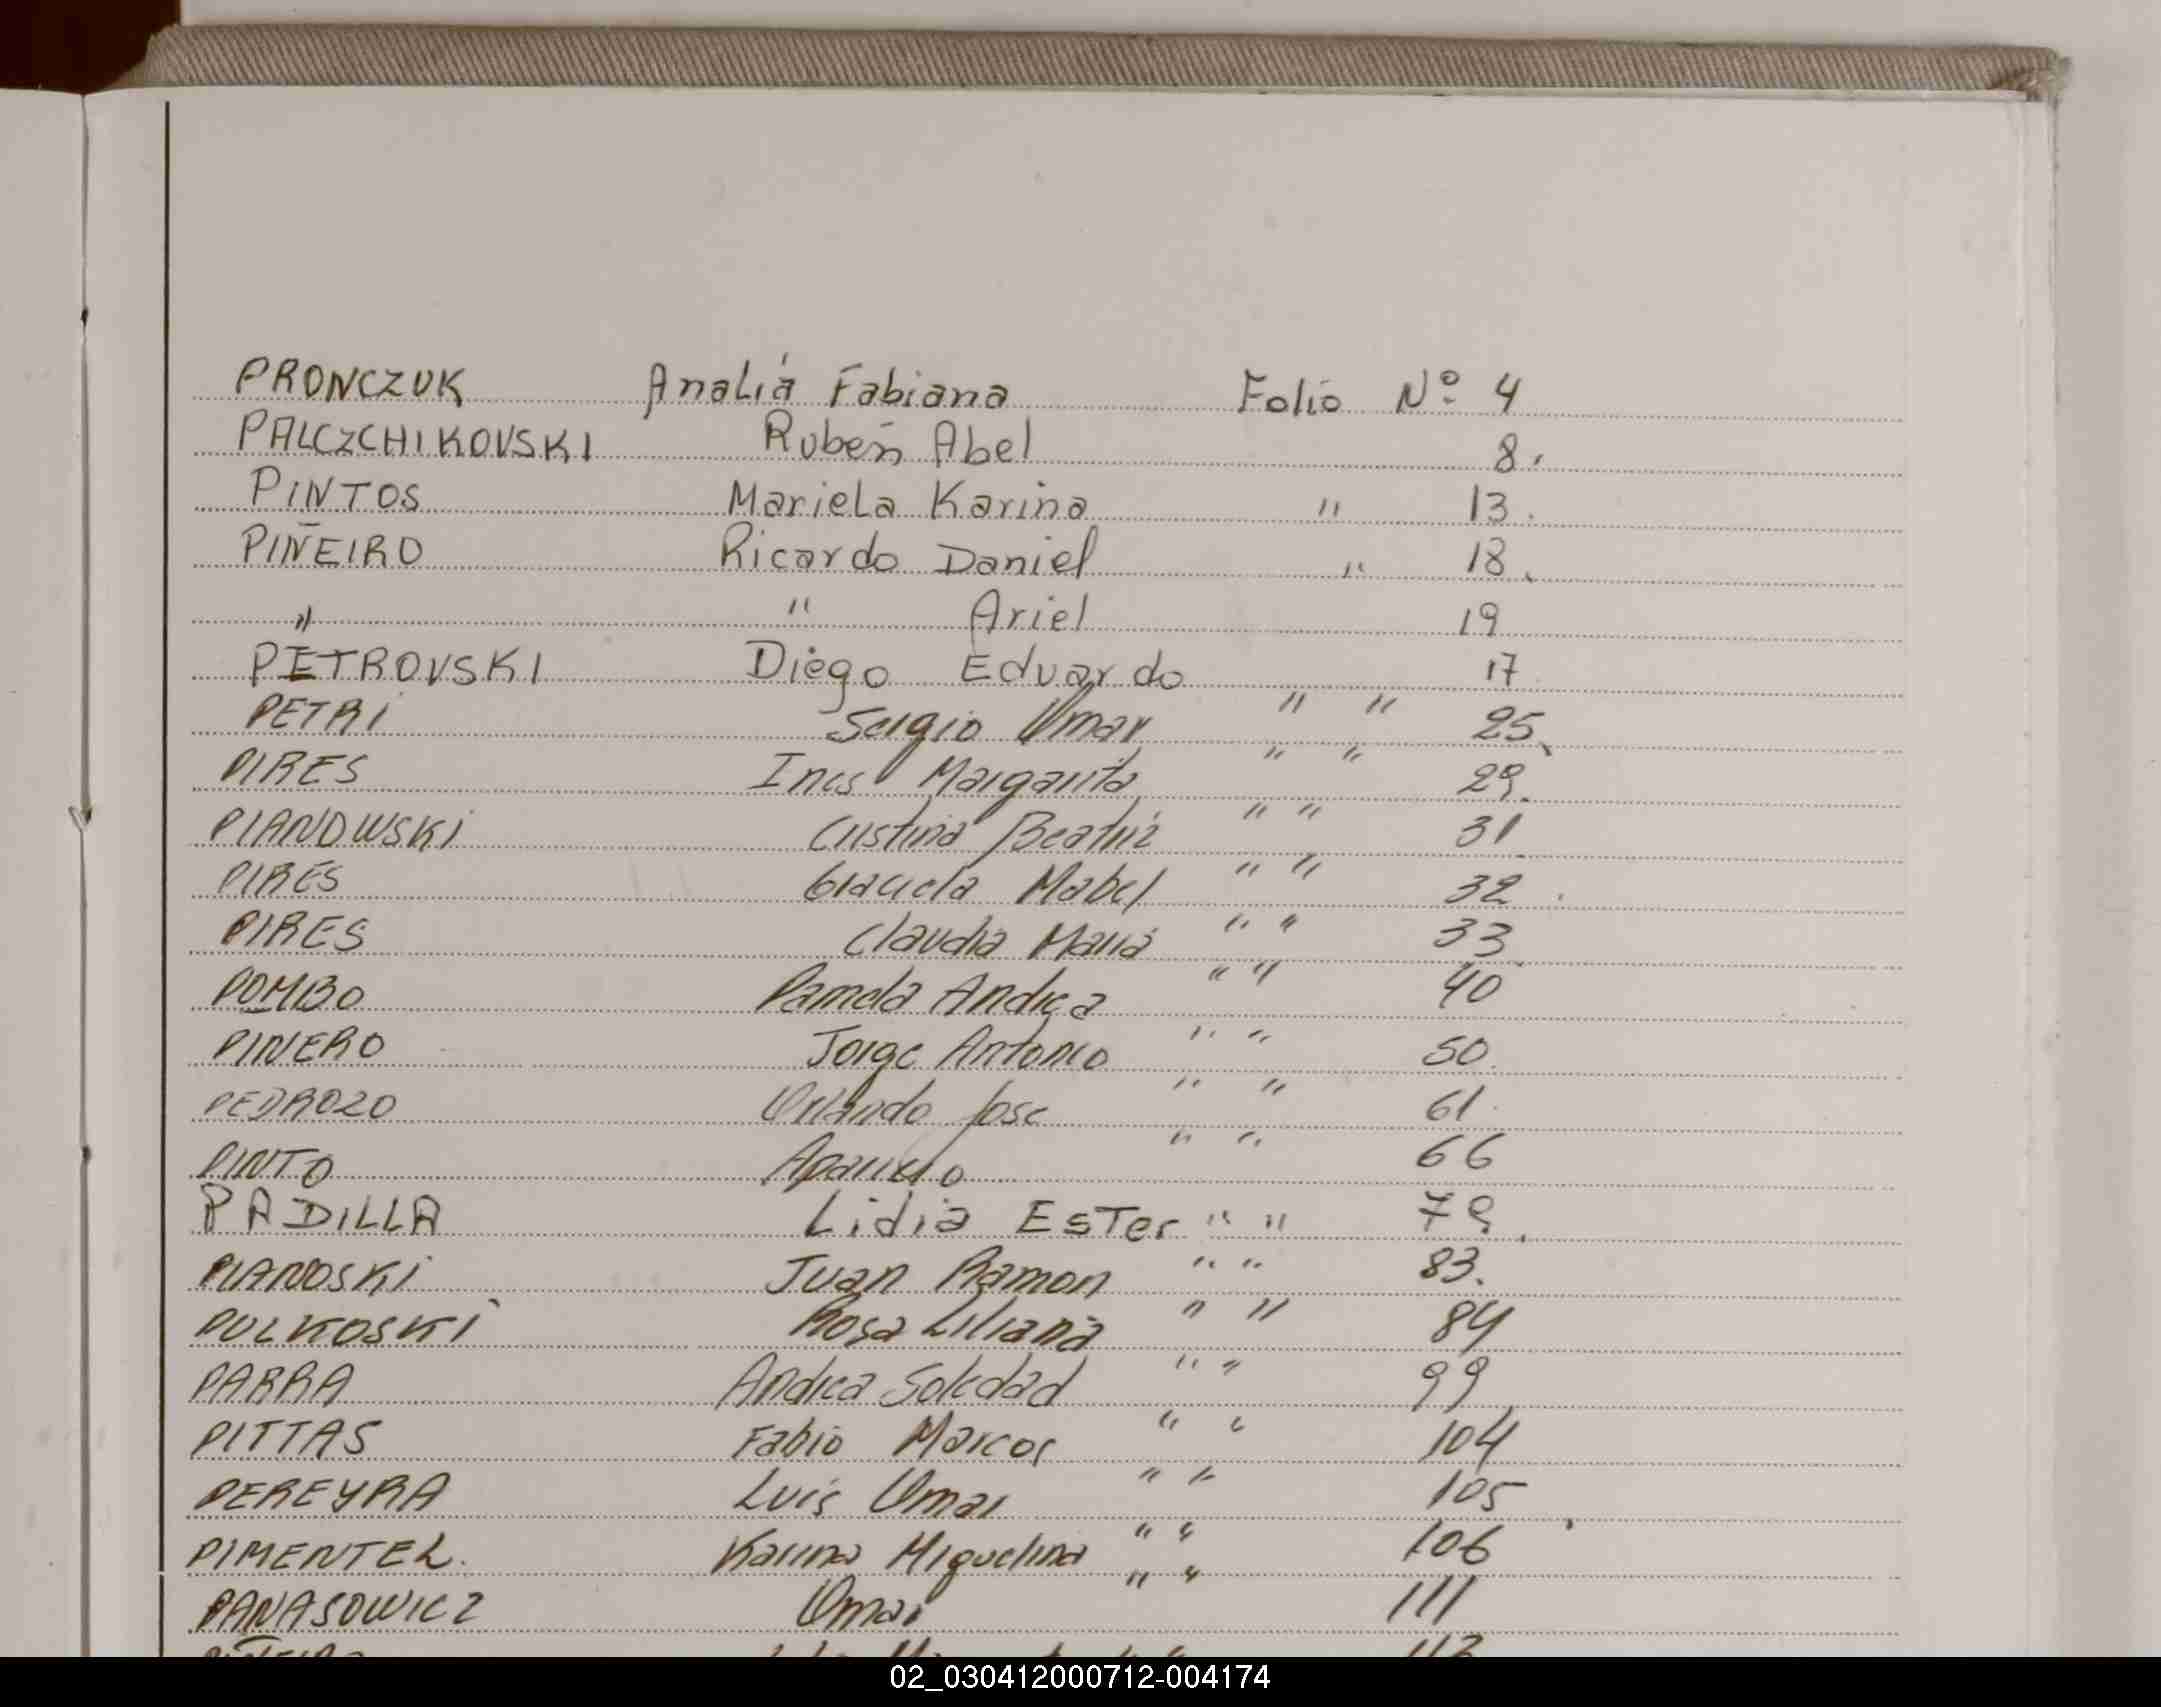 PRONCZUK Analiá Fabiana Folio Nº 4
PALCZCHIKOVSKI Rubeń Abel 8.
PINTOS Mariela Karina " 13.
PIÑEIRO Ricardo Daniel " 18.
" " Ariel 19
PETROVSKI Diego Eduardo 17
PETRi Sergio Omar " " 25
PIRES Ines Margarita " " 29.
PIANOWSKi Cristina Beatriz " " 31
PIRES Graciela Mabel " " 32
PIRES Claudia Maria " " 33
POMBO Pamela Andrea " " 40
PINERO Jorge Antonio " " 50.
PEDROZO Orlando Jose " " 61.
PINTO Aparicio " " 66
PADILLA Lidia ESTer " " 79.
PIANOSKi Juan Ramon " " 83.
PULKOSKi Rosa Liliana " " 84
PARRA Andrea Soledad " " 99
PITTAS Fabio Marcos " " 104
PEREYRA Luis Omar " " 105
PIMENTEL. Karina Miguelina " " 106
PANASOWICZ Omar " " 111
PIÑEIRO
02_030412000712-004174